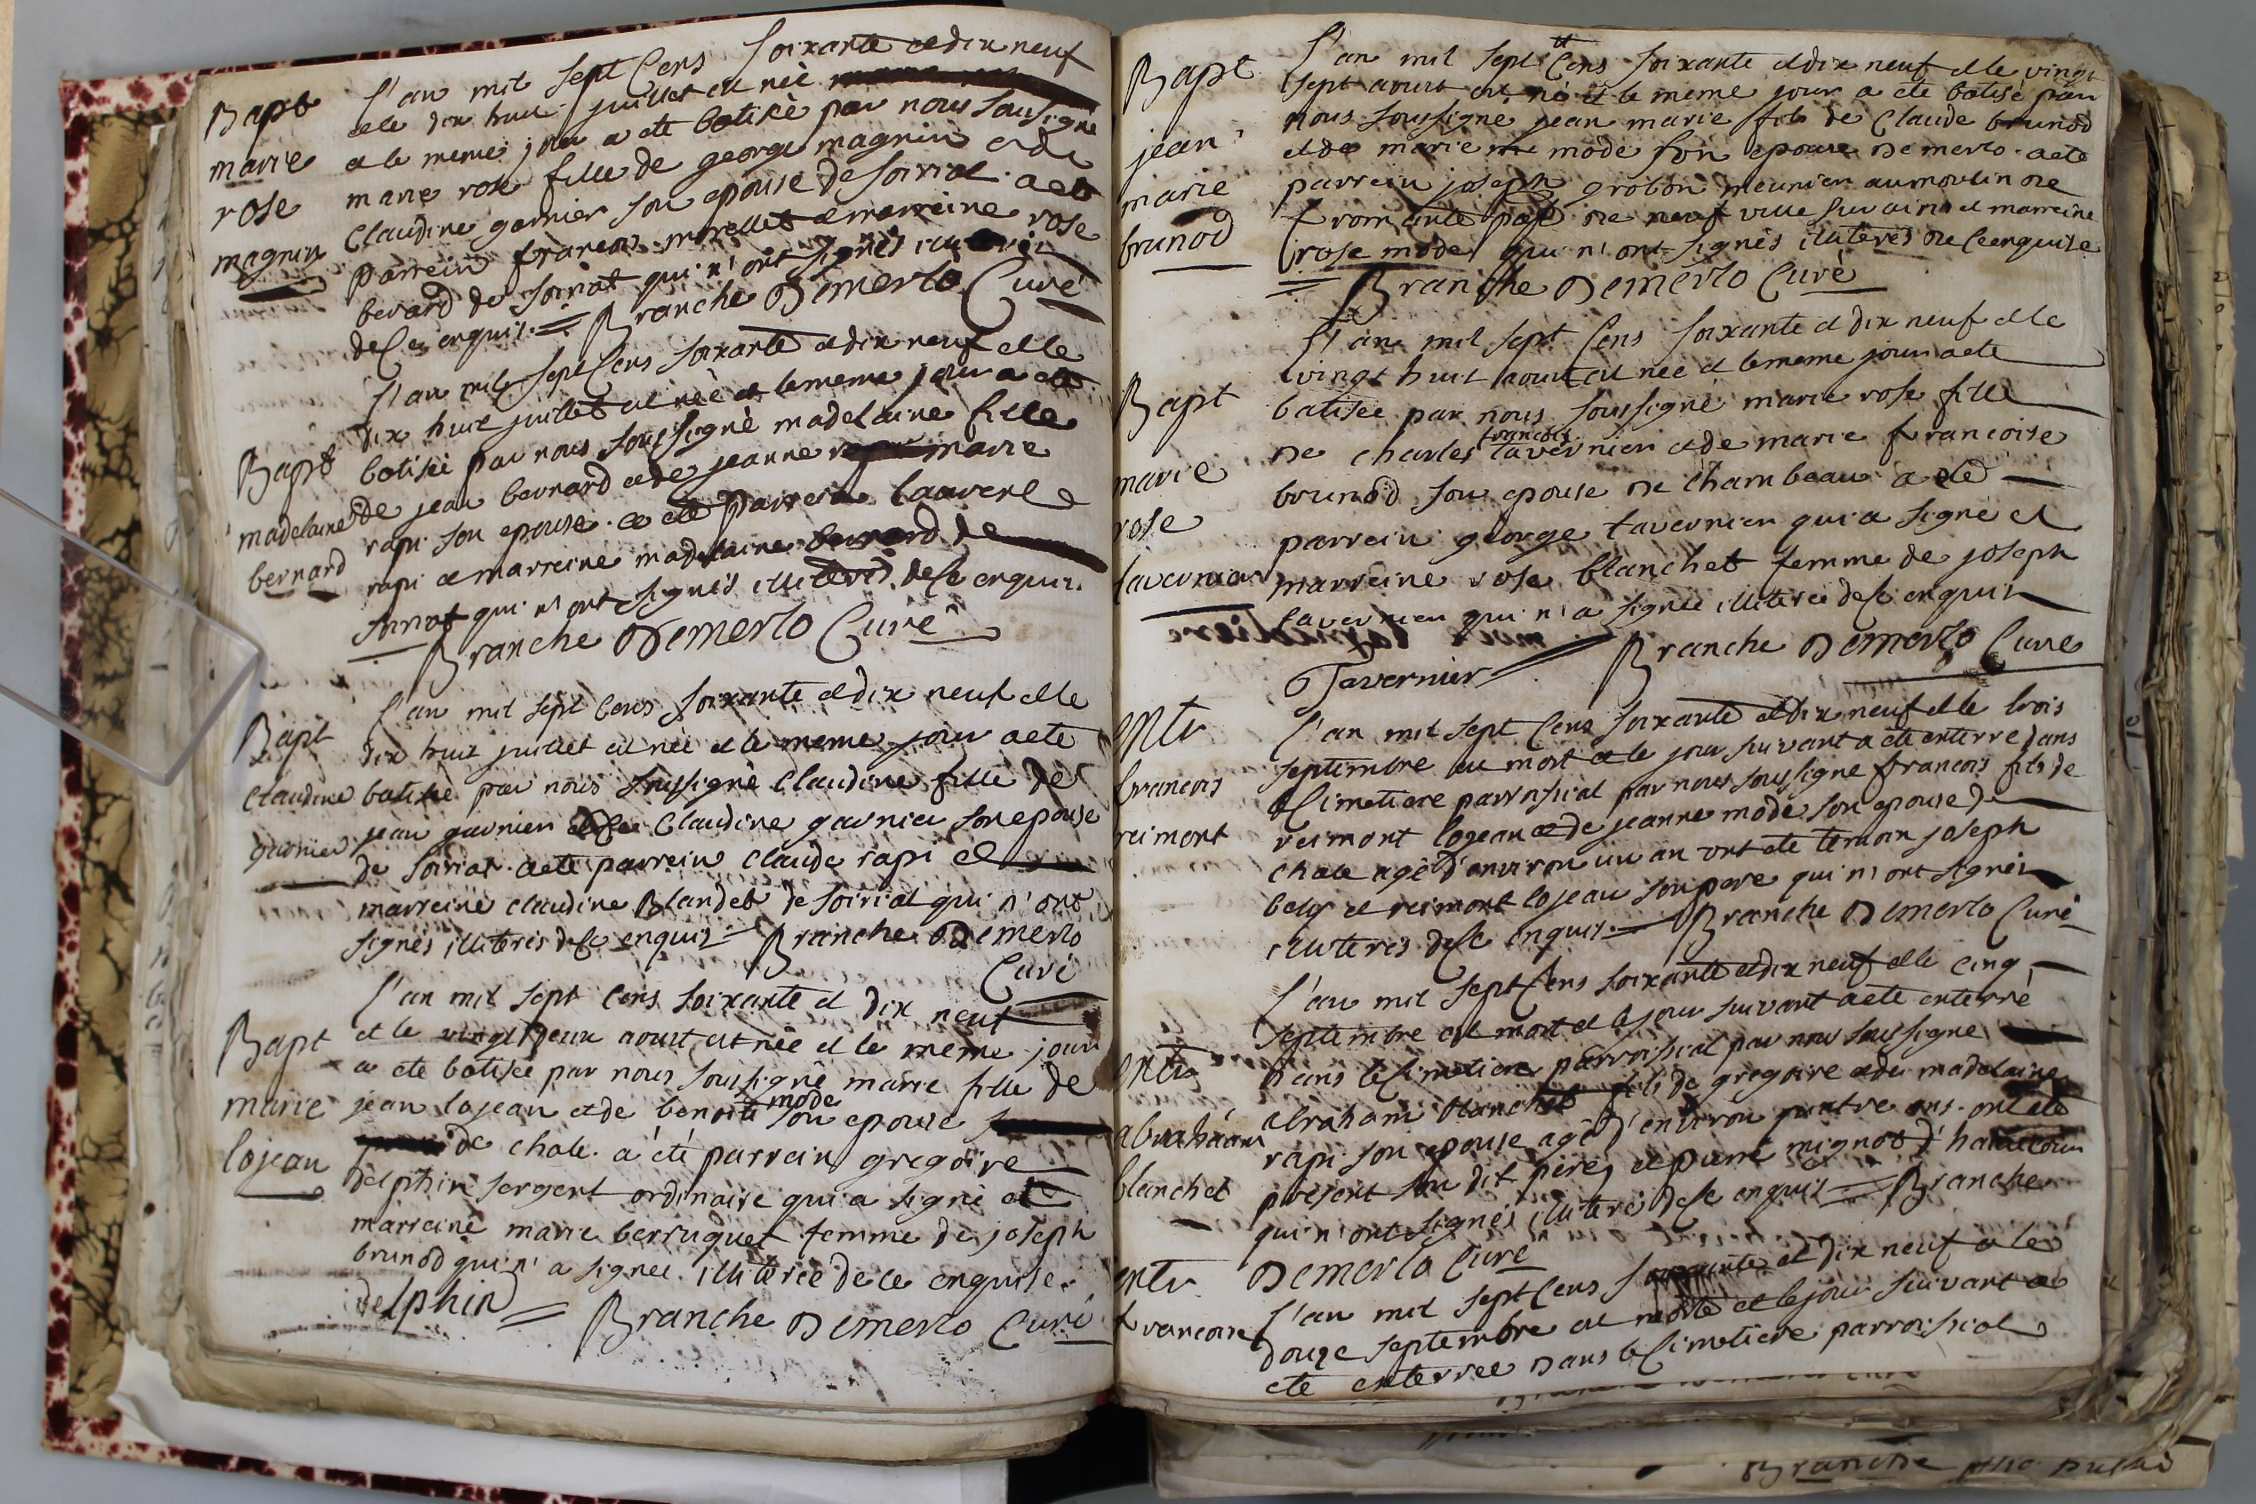 Bapt
marie
rose
magnin
L'an mil sept Cens soixante et dix neuf
et le dix huit juillet est née
et le meme jour a ete batisée par nous soussigné
marie rose fille de george magnin et de
Claudine garnier son epouse de soiriat. a ete
parrein francois morellet et marreine rose
berard de soiriat qui n'ont signés illiterés
de ce enquis. Branche Demerlo Curé
Bapt
madelaine
bernard
L'an mil sept Cens soixante et dix neuf et le
dix huit juillet est née et le meme jour a ete
batisée par nous soussigné madelaine fille
de jean bernard et de jeanne marie
rapi son epouse. a ete parrein laurent
rapi et marreine madelaine bernard de
qui n'ont signés illiterés de ce enquis.
Branche Demerlo Curé
Bapt
claudine
garnier
L'an mil sept Cens soixante et dix neuf et le
dix huit juillet est née et le meme jour a ete
batisée par nous soussigné Claudine fille de
jean garnier et de Claudine garnier son epouse
de soiriat. a ete parrein claude rapi et
marreine claudine Blandet de soiriat qui n'ont
signés illiterés de ce enquis Branche Demerlo
Curé
Bapt
marie
lojean
L'an mil sept Cens soixante et dix neuf
et le vingt deux aoust est née et le meme jour
a ete batisée par nous soussigné marie fille de
jean lojean et de benoite mode son epouse
de chale. a été parrein gregoire
delphin sergent ordinaire qui a signé et
marreine marie berruquet femme de joseph
brunod qui n'a signee illiterée de ce enquise.
delphin Branche Demerlo Curé
Bapt
jean
marie
brunod
L'an mil sept Cens soixante et dix neuf et le vingt
sept aoust est né et le meme jour a ete batisé par
nous soussigné jean marie fils de Claude brunod
et de marie mode son epouse Demerlo. a ete
parrein joseph grobon meunier au moulin de
fromante de neuf ville sur ains et marreine
rose mode qui n'ont signés illiterés de ce enquise
Branche Demerlo Curé
Bapt
marie
rose
tavernier
L'an mil sept Cens soixante et dix neuf et le
vingt huit aoust est née et le meme jour a ete
batisée par nous soussigné marie rose fille
de charles francois tavernier et de marie francoise
brunod son epouse de Chambeau a ete
parrein george tavernier qui a signé et
marreine rose blanchet femme de joseph
tavernier qui n'a signée illiterée de ce enquis
Tavernier Branche Demerlo Curé
entr
francois
reimont
L'an mil sept Cens soixante et dix neuf et le trois
septembre est mort et le jour suivant a ete enterré dans
le Cimetiere parroissial par nous soussigné francois fils de
reimont lojean et de jeanne mode son epouse de
chale agé d'environ un an ont ete temoin joseph
et reimont lojean son pere qui n'ont signés
illiterés de ce enquis. Branche Demerlo Curé
entr
abraham
blanchet
L'an mil sept Cens soixante et dix neuf et le cinq
septembre est mort et le jour suivant a ete enterré
dans le Cimetiere parroissial par nous soussigné
abraham blanchet fils de gregoire et de madelaine
rapi son epouse agé d'environ quatre ans. ont ete
present son dit pere et pierre mignot d'hautecour
qui n'ont signés illiteré de ce enquis Branche
Demerlo Curé
entr
francoise
L'an mil sept Cens soixante et dix neuf et le
douze septembre est morte et le jour suivant a
ete enterree dans le Cimetiere parroissial
Branche